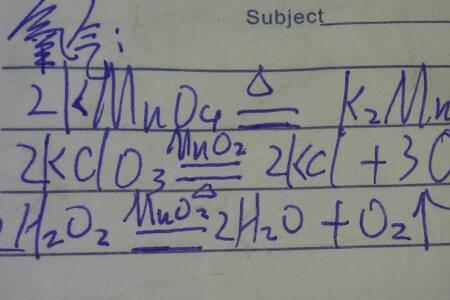 Subject
氧气:
2KMnO₄ ≜ K₂Mn
2KClO₃ MnO₂ == △ 2KCl + 3O
2H₂O₂ MnO₂ == 2H₂O + O₂↑